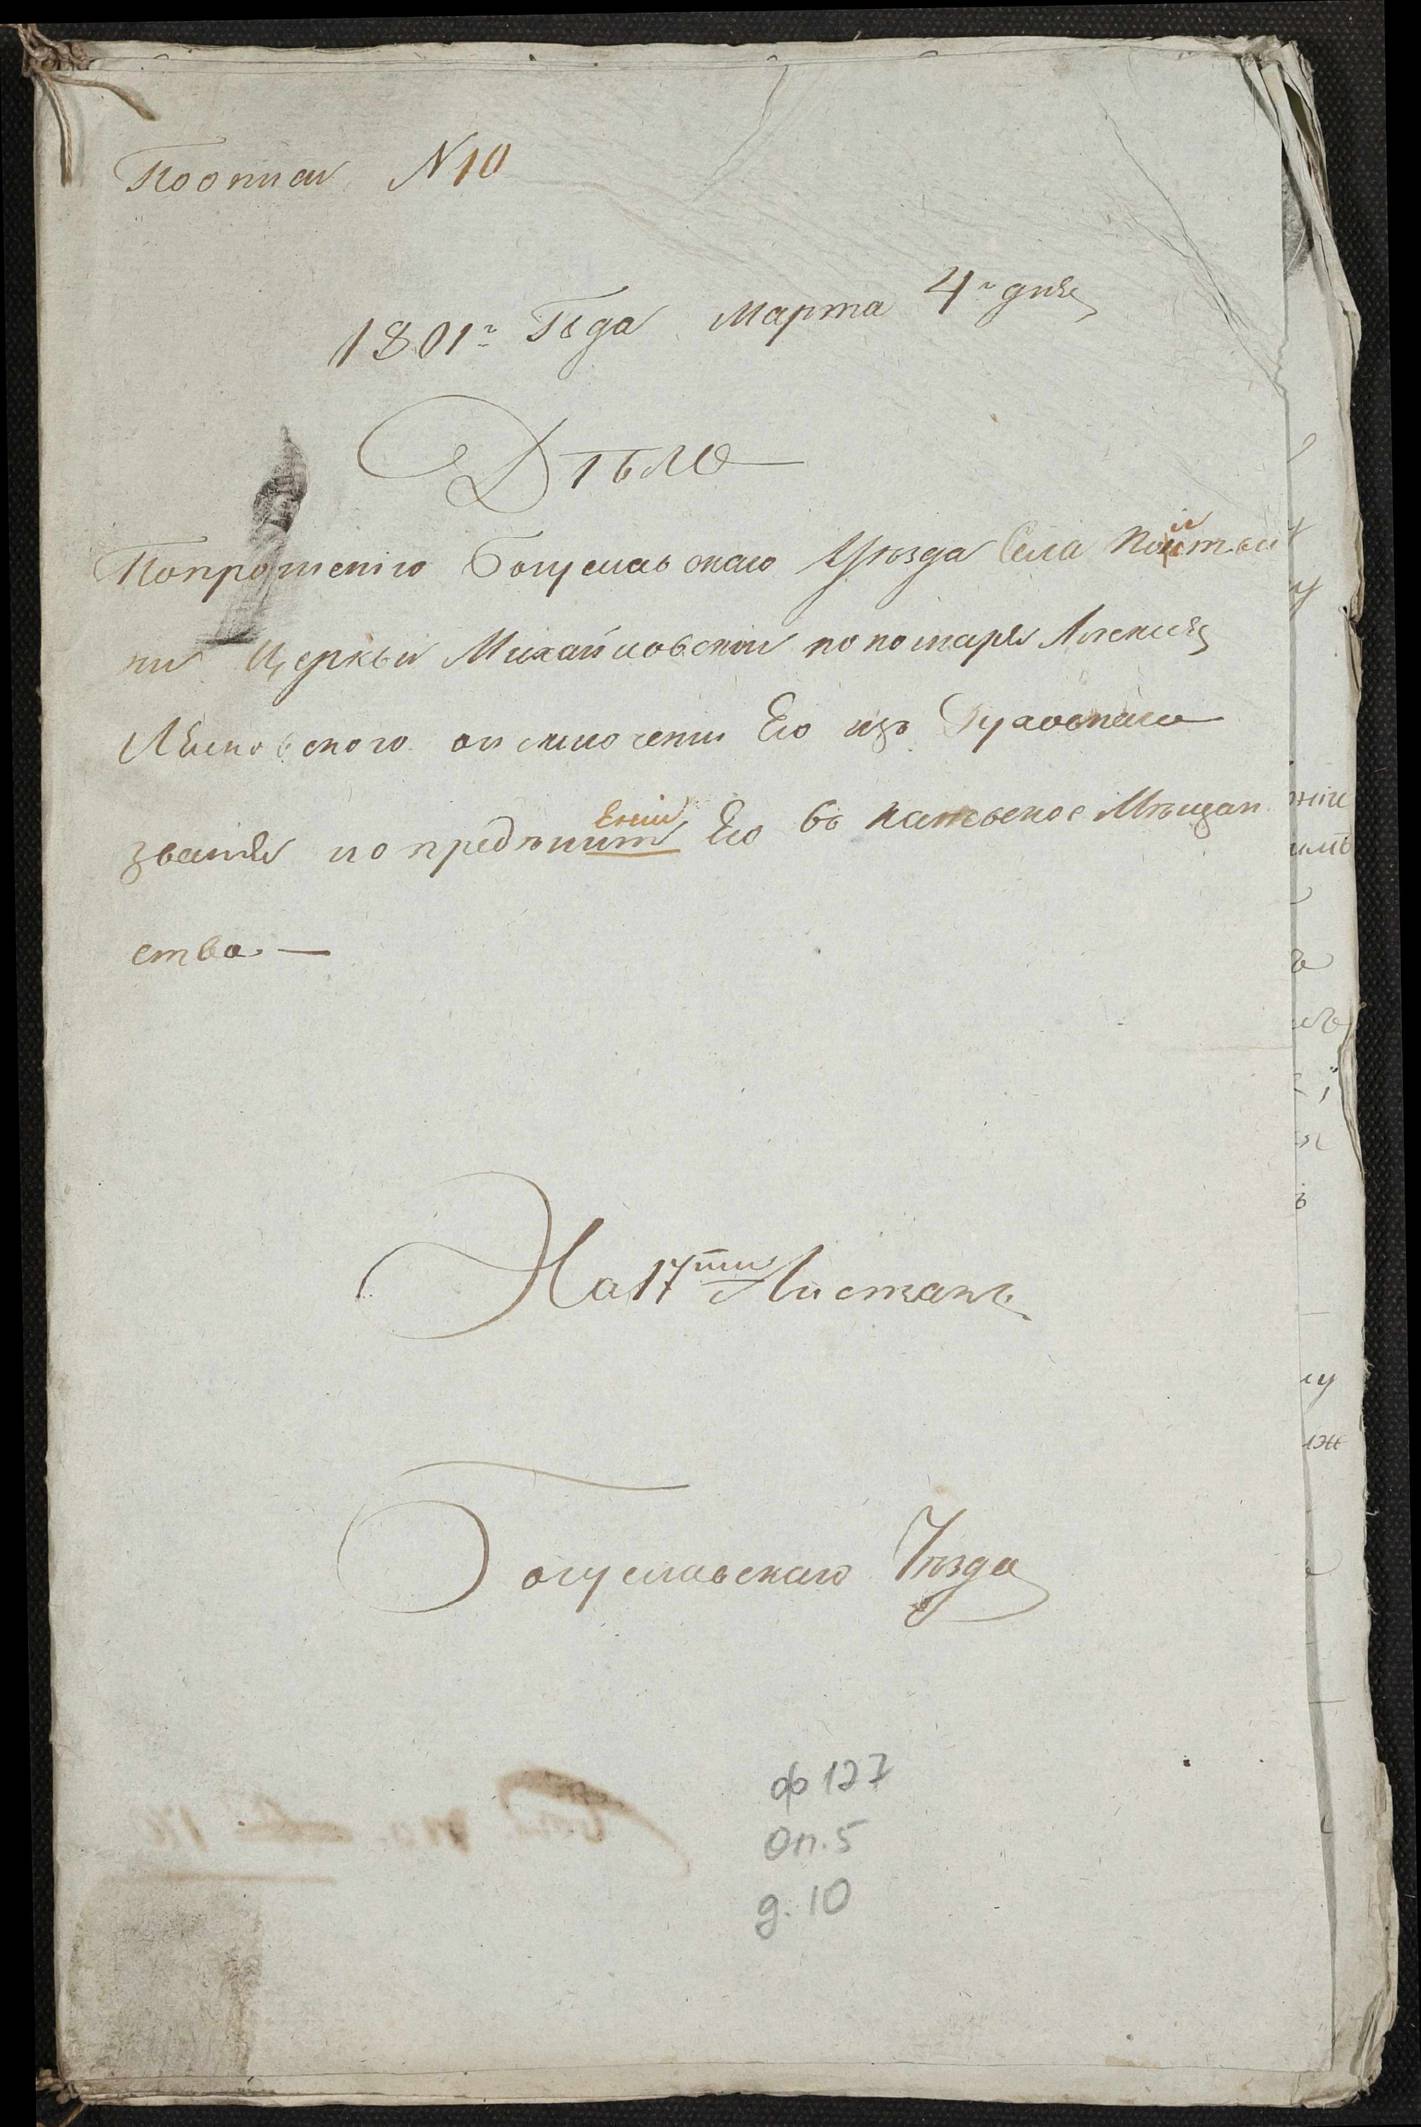 По описи N 10
1801г Года марта 4г дня
Дѣло
По прошению Богуславскаго Уѣзда Села
ни Церкви Михайловской понамаря Алексия
Лѣсковского оисключении Его изъ Духовнаго
звания и опредѣлении Его въ Каневское Мѣщан
ство —
На 17ти Листахъ
Богуславскаго Уѣзда
ф 127
оп. 5
д. 10